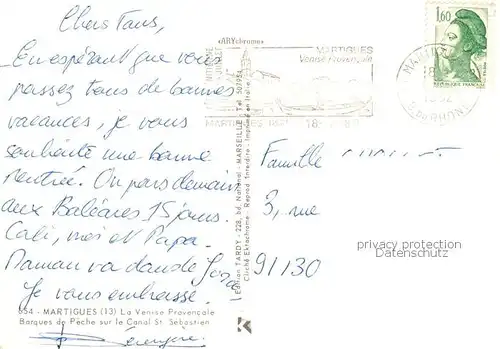 Chers Tous,
En espérant que vous
passez tous de bonnes
vacances, je vous
souhaite une bonne
rentrée. On pars demain
aux Baléares 15 jours.
Cali, moi et Papa.
Maman va dans le
Je vous embrasse.
Bérengère
954 - MARTIGUES (13) La Venise Provençale
Barques de Pêche sur le Canal St. Sébastien
«ARYchrome»
Edition TARDY - 228, bd. National - MARSEILLE - Tel. 502954
Cliché Ektachrome - Reprod. Interdite - Imprimé en Italie
K
MARTIGUES
Venise Provençale
MARTIGUES
18
MARTIGUES
18
B. DU RHONE
1,60
REPUBLIQUE FRANÇAISE
Famille
3, rue
91130
privacy protection
Datenschutz